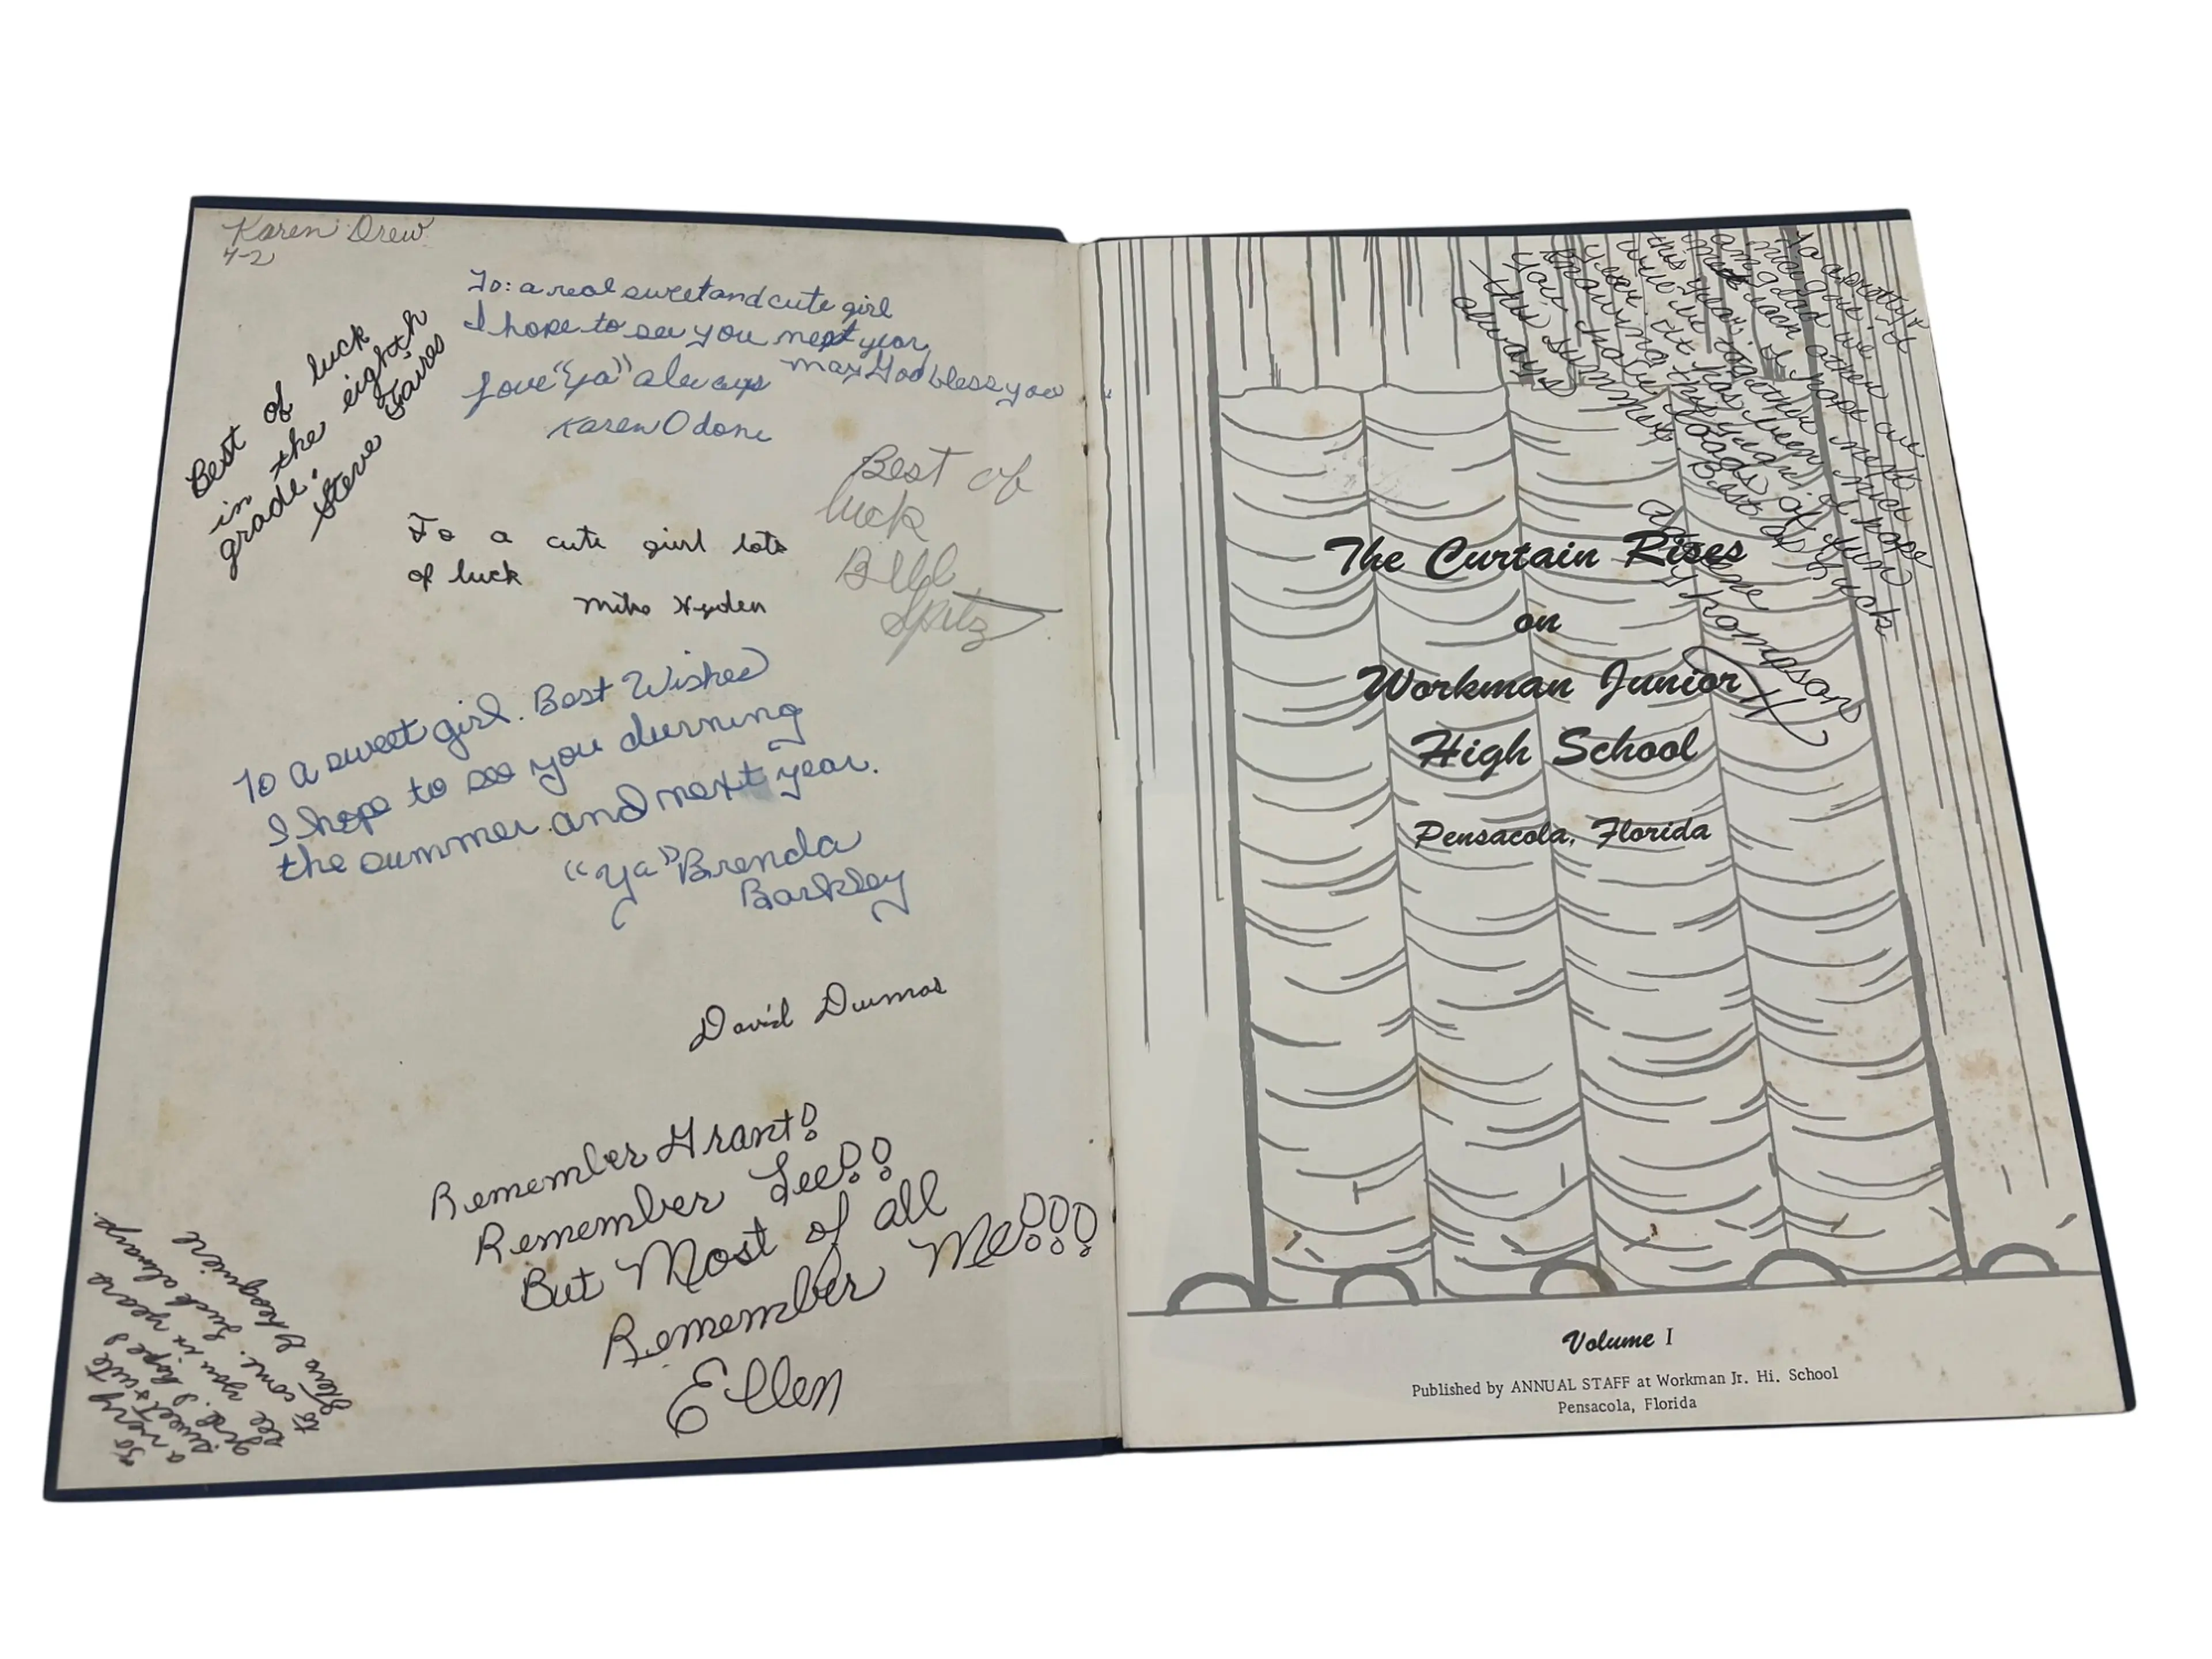 Karen Drew
4-2
To: a real sweet and cute girl
I hope to see you next year
Love "ya" always may God bless you
Karen Odom
Best of luck
in the eighth
grade!
Steve Faires
Best of
luck
Bill
Spitz
To a cute girl lots
of luck
Mike Hyden
To a sweet girl. Best Wishes
I hope to see you durning
the summer and next year.
"Ya" Brenda
Barkley
David Dumas
Remember Grant!
Remember Lee!!
But Most of all
Remember Me!!!
Ellen
To
a very
sweet & cute
girl. I hope I
see you in years
to come. Luck always.
Steve
To a pretty
am glad we
met each other
this year, I hope we
will be together next
year. It has been nice
knowing this year. I hope
you have loads of fun
this summer Best of luck
always
Thompson
The Curtain Rises
on
Workman Junior
High School
Pensacola, Florida
Volume I
Published by ANNUAL STAFF at Workman Jr. Hi. School
Pensacola, Florida